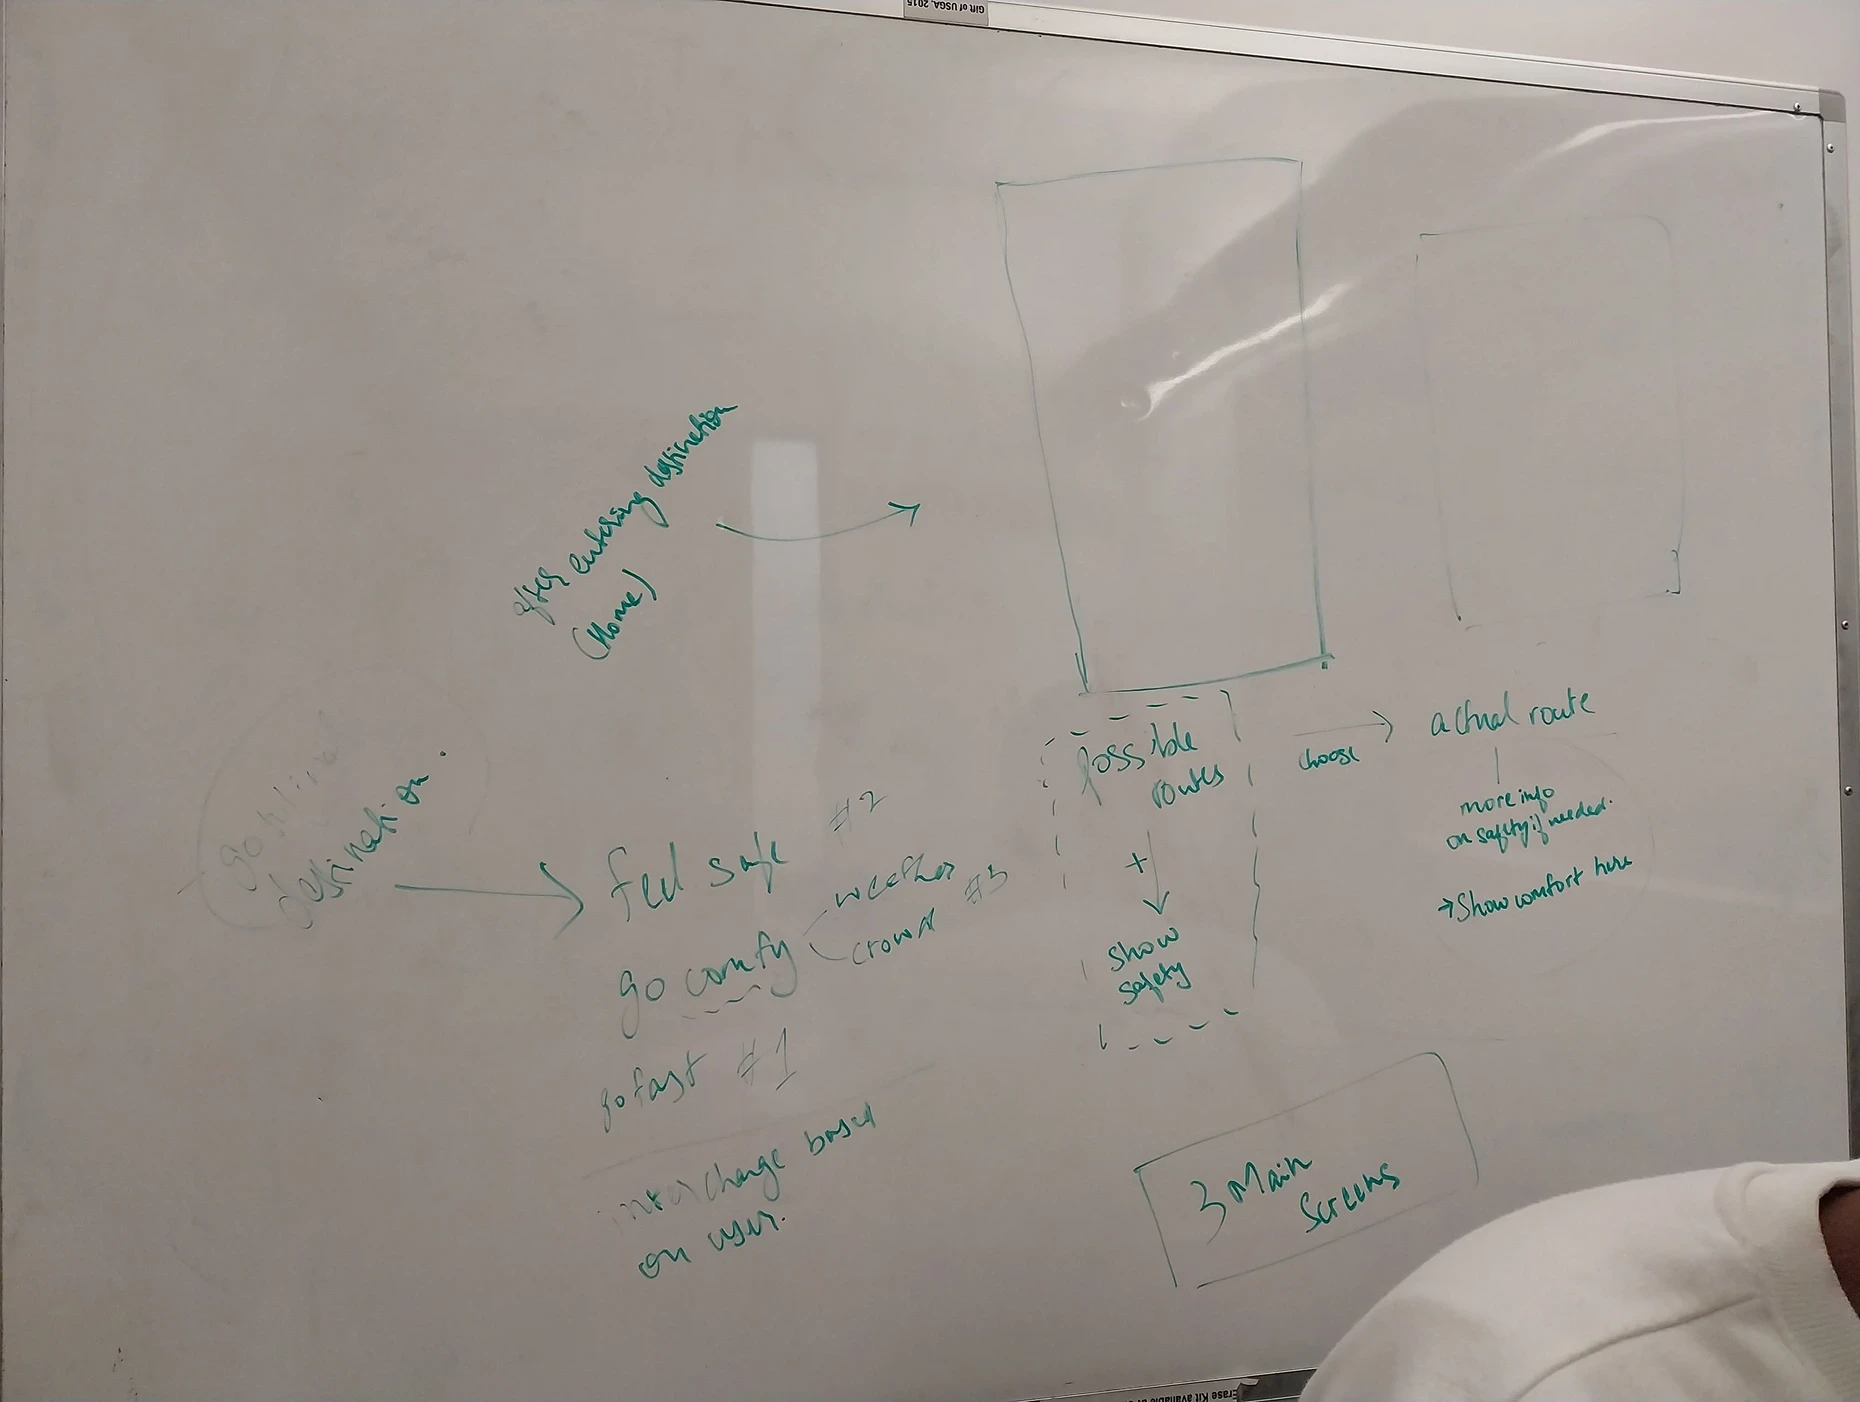 Gift of USGA, 2015
after entering destination
(Home)
destination.
feel safe #2
go comfy
weather
crowd #3
go fast #1
interchange based
on user.
possible
routes
+
show
safety
choose
actual route
more info
on safety if needed.
→ Show comfort here
3 Main
Screens
Erase Kit available